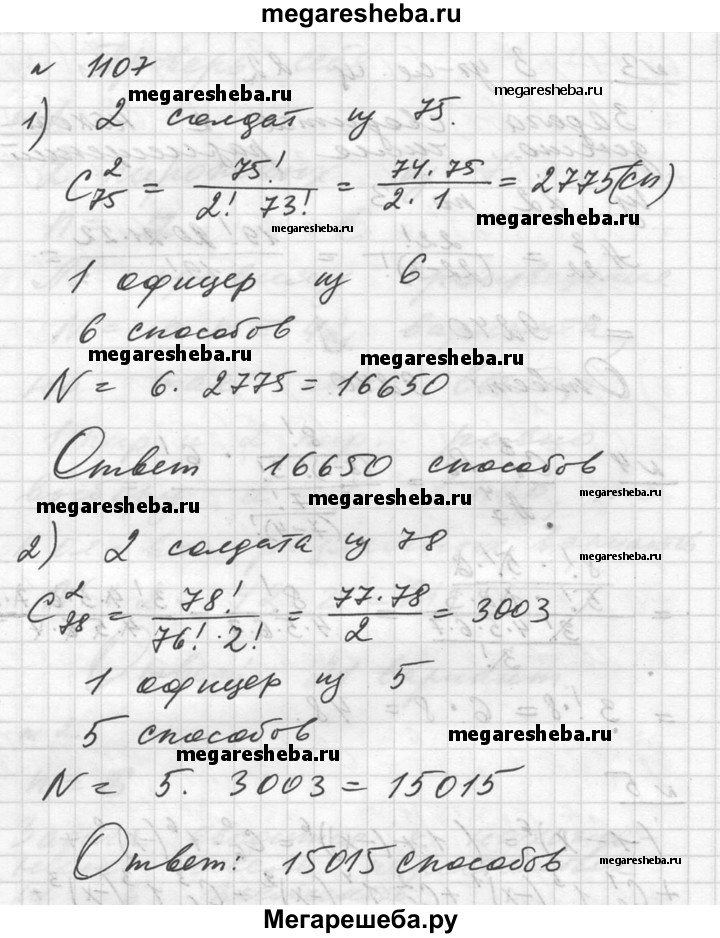 megaresheba.ru
№ 1107
megaresheba.ru megaresheba.ru
1) 2 солдат из 75.
C₇₅² = 75! / 2! 73! = 74·75 / 2·1 = 2775(сп)
megaresheba.ru megaresheba.ru
1 офицер из 6
6 способов
megaresheba.ru megaresheba.ru
N = 6. 2775 = 16650
Ответ 16650 способов
megaresheba.ru megaresheba.ru megaresheba.ru
2) 2 солдата из 78
megaresheba.ru
C₇₈² = 78! / 76!·2! = 77·78 / 2 = 3003
1 офицер из 5
5 способов
megaresheba.ru megaresheba.ru
N = 5. 3003 = 15015
Ответ: 15015 способов
megaresheba.ru
Мегарешеба.ру